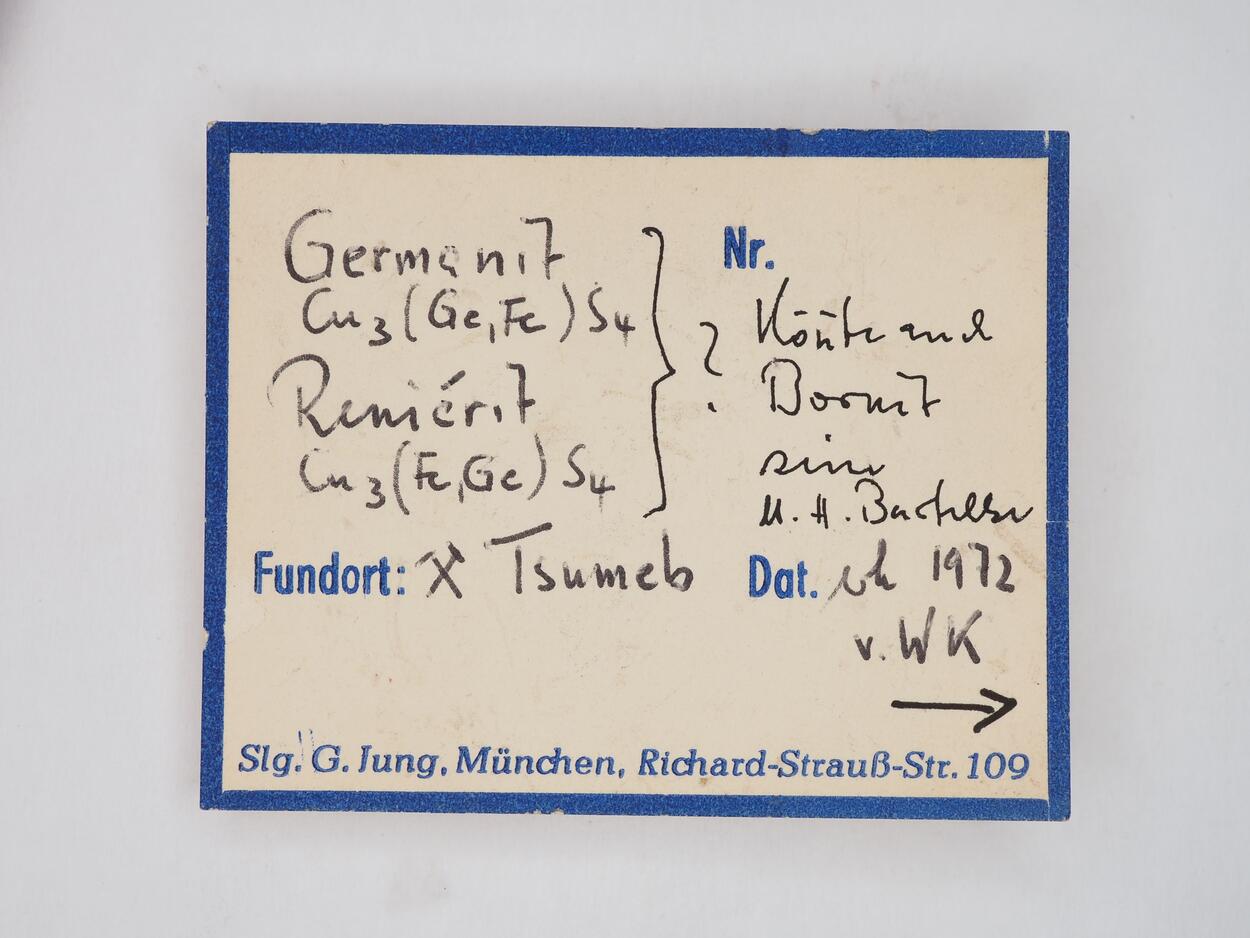 Germanit
Cu3(Ge,Fe)S4
Reniérit
Cu3(Fe,Ge)S4
Nr.
?
Könnte auch
Bornit
sein
Fundort: ⚒ Tsumeb
Dat. 1972
v. WK
→
Slg. G. Jung, München, Richard-Strauß-Str. 109